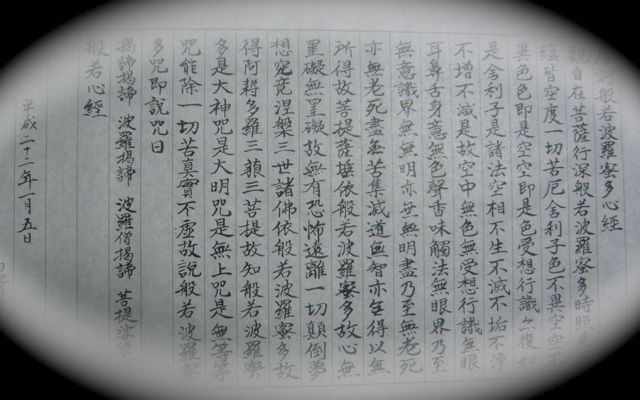 訶般若波羅蜜多心經
觀自在菩薩行深般若波羅蜜多時照見
蘊皆空度一切苦厄舍利子色不異空空不
異色色即是空空即是色受想行識亦復如
是舍利子是諸法空相不生不滅不垢不淨
不增不減是故空中無色無受想行識無眼
耳鼻舌身意無色聲香味觸法無眼界乃至
無意識界無無明亦無無明盡乃至無老死
亦無老死盡無苦集滅道無智亦無得以無
所得故菩提薩埵依般若波羅蜜多故心無
罣礙無罣礙故無有恐怖遠離一切顛倒夢
想究竟涅槃三世諸佛依般若波羅蜜多故
得阿耨多羅三藐三菩提故知般若波羅蜜
多是大神咒是大明咒是無上咒是無等等
咒能除一切苦真實不虛故說般若波羅蜜
多咒即說咒曰
揭諦揭諦 波羅揭諦 波羅僧揭諦 菩提娑
般若心經
平成二十二年一月五日